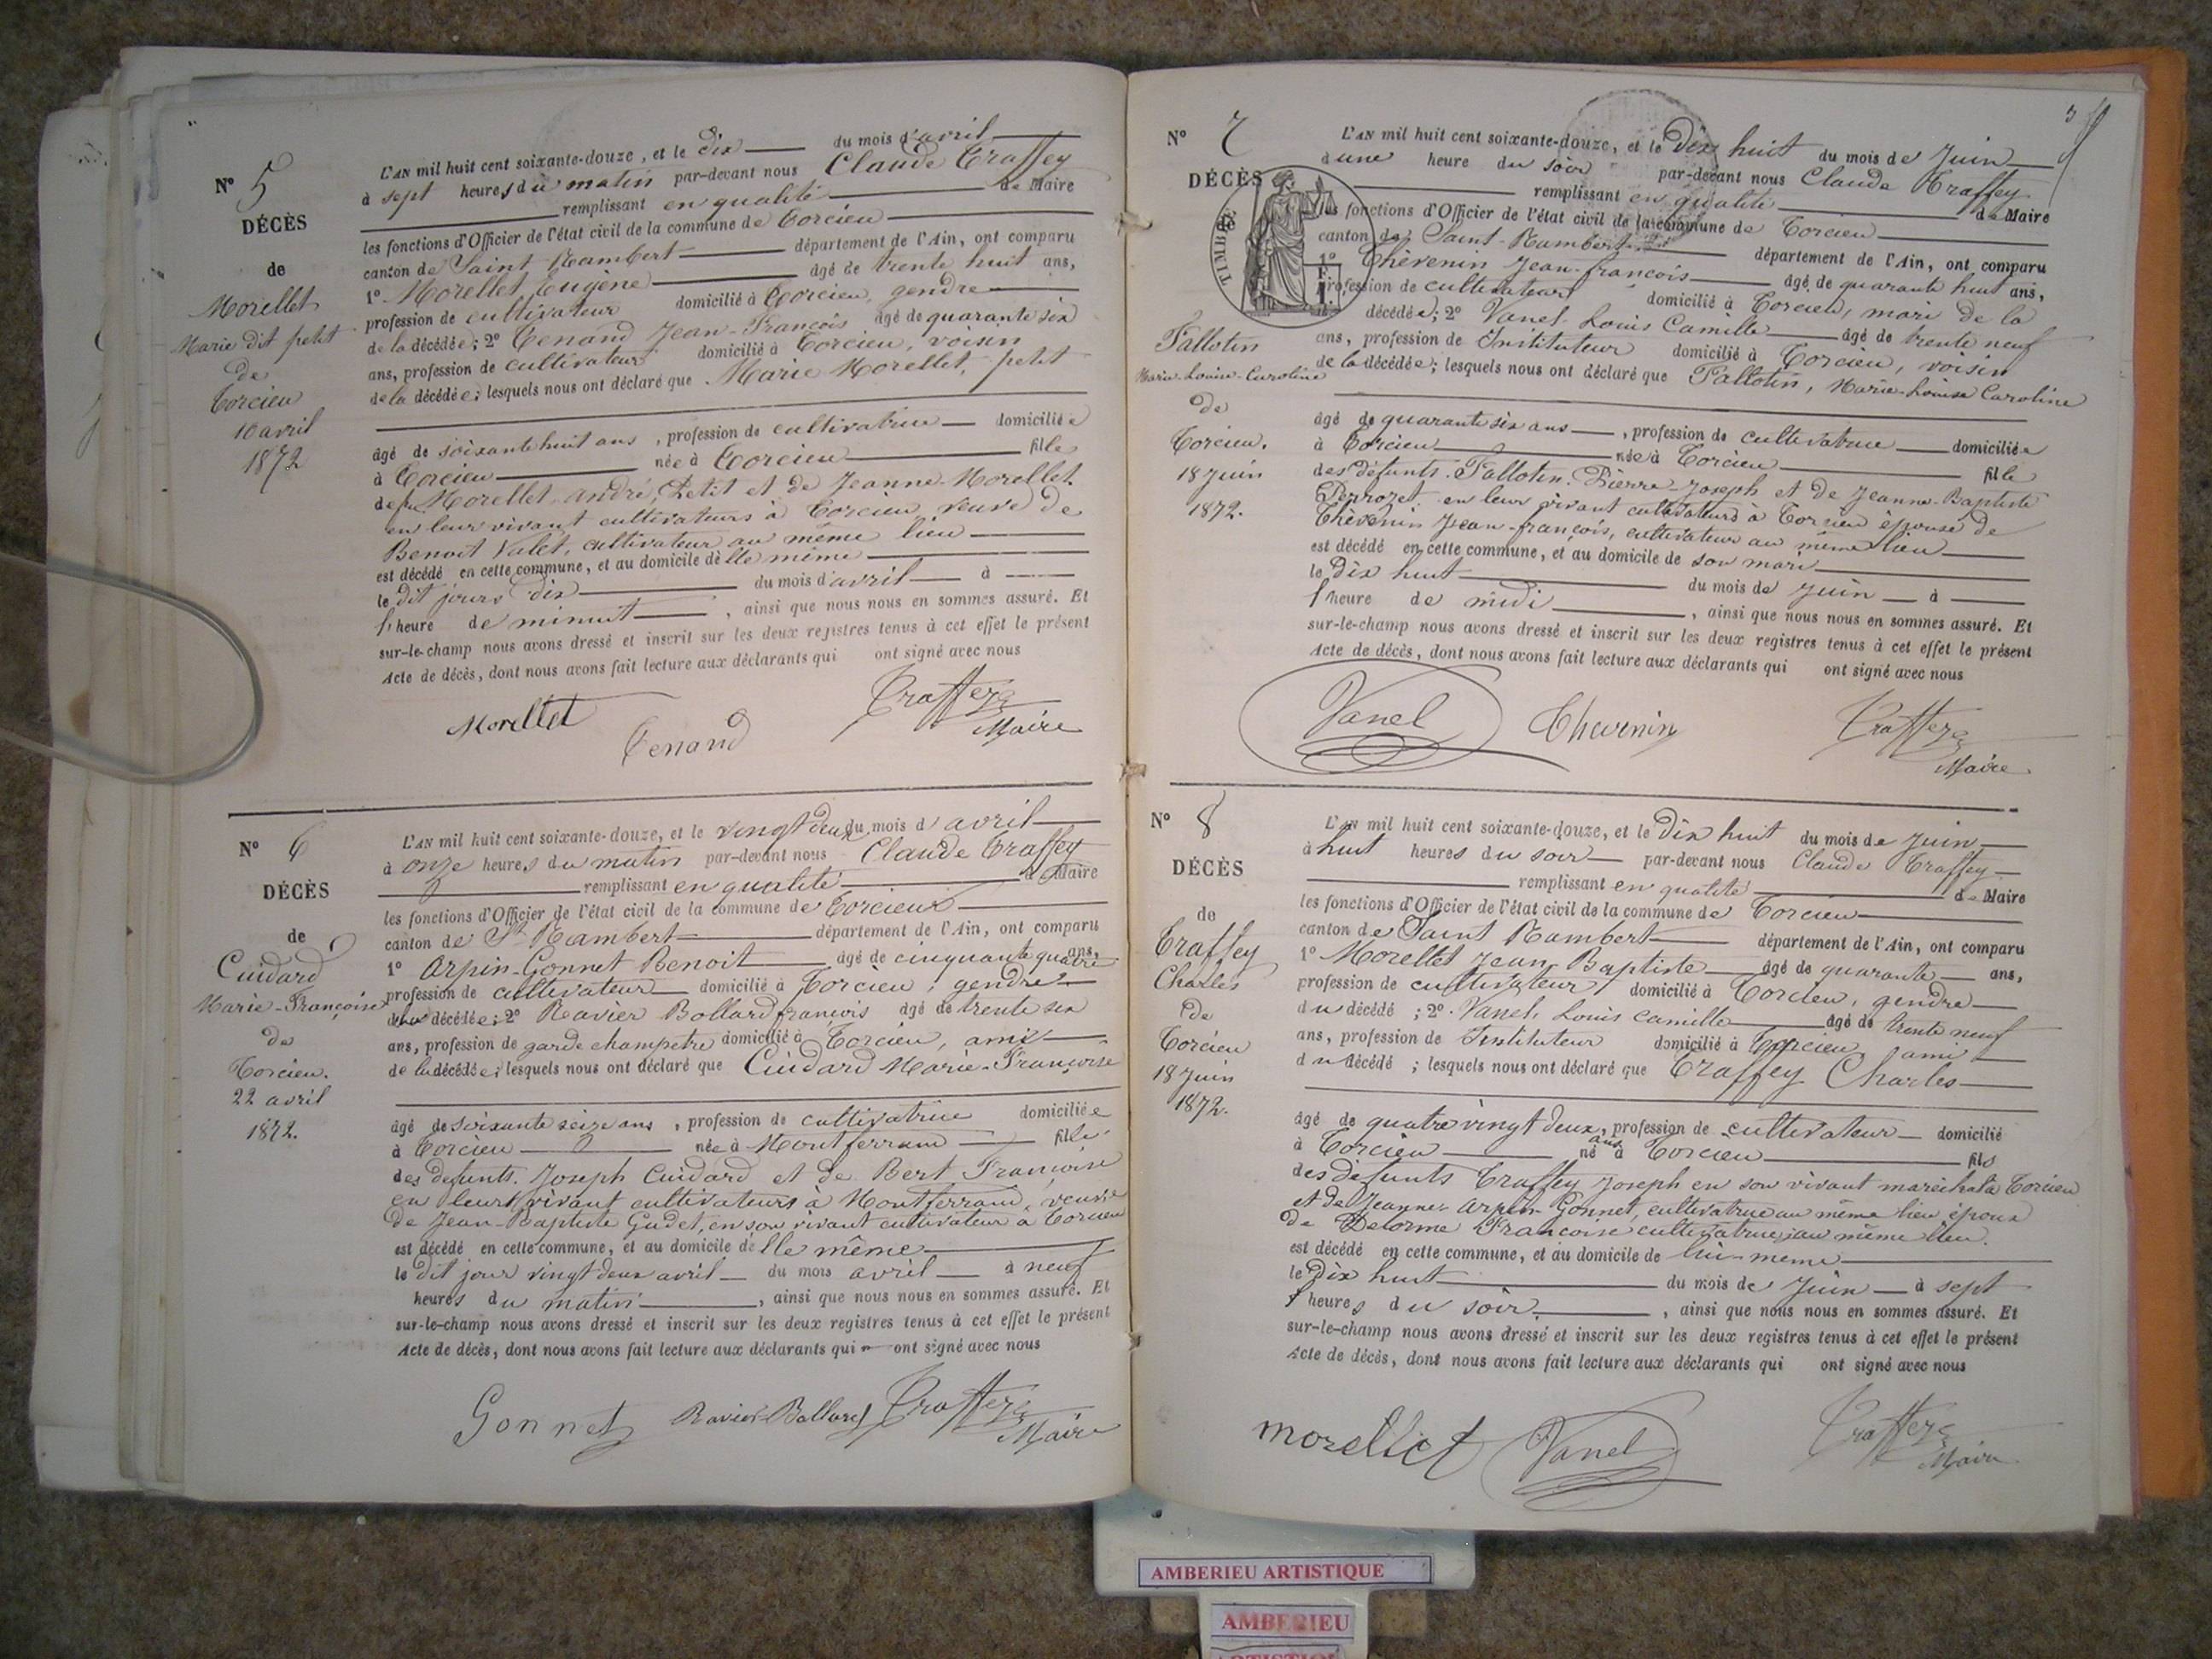 N° 5
DÉCÈS
de
Morellet
Marie dit petit
de
Torcieu
10 avril
1872
L'AN mil huit cent soixante-douze, et le dix du mois d'avril
à sept heures du matin par-devant nous Claude Traffey
remplissant en qualité de Maire
les fonctions d'Officier de l'état civil de la commune de Torcieu
canton de Saint Rambert département de l'Ain, ont comparu
1° Morellet, Eugène âgé de trente huit ans,
profession de cultivateur domicilié à Torcieu, gendre
de la décédée; 2° Tenand Jean-François âgé de quarante six
ans, profession de cultivateur domicilié à Torcieu, voisin
de la décédée; lesquels nous ont déclaré que Marie Morellet, petit
âgé de soixante huit ans, profession de cultivatrice domiciliée
à Torcieu née à Torcieu fille
de feu Morellet André, Petit et de Jeanne Morellet
en leur vivant cultivateurs à Torcieu, veuve de
Benoit Valet, cultivateur au même lieu
est décédé en cette commune, et au domicile d'elle même
le dit jour dix du mois d'avril à
l'heure de minuit, ainsi que nous nous en sommes assuré. Et
sur-le-champ nous avons dressé et inscrit sur les deux registres tenus à cet effet le présent
Acte de décès, dont nous avons fait lecture aux déclarants qui ont signé avec nous
Morellet Tenand Traffey
Maire
N° 6
DÉCÈS
de
Cuidard
Marie-Françoise
de
Torcieu.
22 avril
1872.
L'AN mil huit cent soixante-douze, et le vingt deux du mois d'avril
à onze heures du matin par-devant nous Claude Traffey
remplissant en qualité de Maire
les fonctions d'Officier de l'état civil de la commune de Torcieu
canton de St Rambert département de l'Ain, ont comparu
1° Arpin-Gonnet Benoit âgé de cinquante quatre ans,
profession de cultivateur domicilié à Torcieu, gendre
de la décédée; 2° Ravier Bollard françois âgé de trente six
ans, profession de garde champetre domicilié à Torcieu, ami
de la décédée; lesquels nous ont déclaré que Cuidard Marie-Françoise
âgé de soixante seize ans, profession de cultivatrice domiciliée
à Torcieu née à Montferrand fille
des defunts Joseph Cuidard et de Bert Françoise
en leur vivant cultivateurs à Montferrand, veuve
de Jean-Baptiste Gudet, en son vivant cultivateur à Torcieu
est décédé en cette commune, et au domicile d'elle même
le dit jour vingt deux avril du mois avril à neuf
heures du matin, ainsi que nous nous en sommes assuré. Et
sur-le-champ nous avons dressé et inscrit sur les deux registres tenus à cet effet le présent
Acte de décès, dont nous avons fait lecture aux déclarants qui ont signé avec nous
Gonnet Ravier-Bollard Traffey
Maire
3
N° 7
DÉCÈS
de
TIMBRE
1 F.
Pallotin
Marie-Louise-Caroline
de
Torcieu.
18 Juin
1872.
L'AN mil huit cent soixante-douze, et le Dix huit du mois de Juin
à une heure du soir par-devant nous Claude Traffey
remplissant en qualité de Maire
les fonctions d'Officier de l'état civil de la commune de Torcieu
canton de Saint-Rambert département de l'Ain, ont comparu
1° Thèvenin Jean-françois âgé de quarante huit ans,
profession de cultivateur domicilié à Torcieu, mari de la
décédée; 2° Vanel, Louis Camille âgé de trente neuf
ans, profession de Instituteur domicilié à Torcieu, voisin
de la décédée; lesquels nous ont déclaré que Pallotin, Marie-Louise Caroline
âgé de quarante six ans, profession de cultivatrice domiciliée
à Torcieu née à Torcieu fille
des défunts Pallotin, Pierre-Joseph et de Jeanne-Baptiste
Perrozet en leur vivant cultivateurs à Torcieu épouse de
Thèvenin Jean-françois, cultivateur au même lieu
est décédé en cette commune, et au domicile de son mari
le Dix huit du mois de Juin à
l'heure de midi, ainsi que nous nous en sommes assuré. Et
sur-le-champ nous avons dressé et inscrit sur les deux registres tenus à cet effet le présent
Acte de décès, dont nous avons fait lecture aux déclarants qui ont signé avec nous
Vanel Thevenin Traffey
Maire
N° 8
DÉCÈS
de
Traffey
Charles
de
Torcieu
18 Juin
1872.
L'AN mil huit cent soixante-douze, et le Dix huit du mois de Juin
à huit heures du soir par-devant nous Claude Traffey
remplissant en qualité de Maire
les fonctions d'Officier de l'état civil de la commune de Torcieu
canton de Saint Rambert département de l'Ain, ont comparu
1° Morellet Jean Baptiste âgé de quarante ans,
profession de cultivateur domicilié à Torcieu, gendre
du décédé; 2° Vanel, Louis Camille âgé de trente neuf
ans, profession de Instituteur domicilié à Torcieu ami
du décédé; lesquels nous ont déclaré que Traffey Charles
âgé de quatre vingt deux ans, profession de cultivateur domicilié
à Torcieu né à Torcieu fils
des défunts Traffey Joseph en son vivant maréchal à Torcieu
et de Jeanne Arpin-Gonnet, cultivatrice au même lieu époux
de Delorme Françoise cultivatrice au même lieu.
est décédé en cette commune, et au domicile de lui-même
le Dix huit du mois de Juin à sept
heures du soir, ainsi que nous nous en sommes assuré. Et
sur-le-champ nous avons dressé et inscrit sur les deux registres tenus à cet effet le présent
Acte de décès, dont nous avons fait lecture aux déclarants qui ont signé avec nous
morellet Vanel Traffey
Maire
AMBERIEU ARTISTIQUE
AMBERIEU
ARTISTIQUE